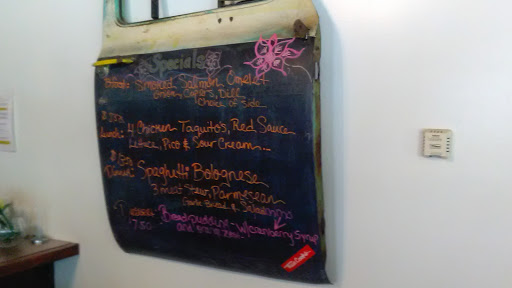 Specials
Smoked Salmon Omelet
Onion, Capers, Dill
Choice of Side
Lunch: 4 Chicken Taquito's, Red Sauce
Lettuce, Pico & Sour Cream
Dinner: Spaghetti Bolognese
3 meat Stew, Parmesean
Garlic Bread & Salad
Bread pudding w/cranberry syrup
and